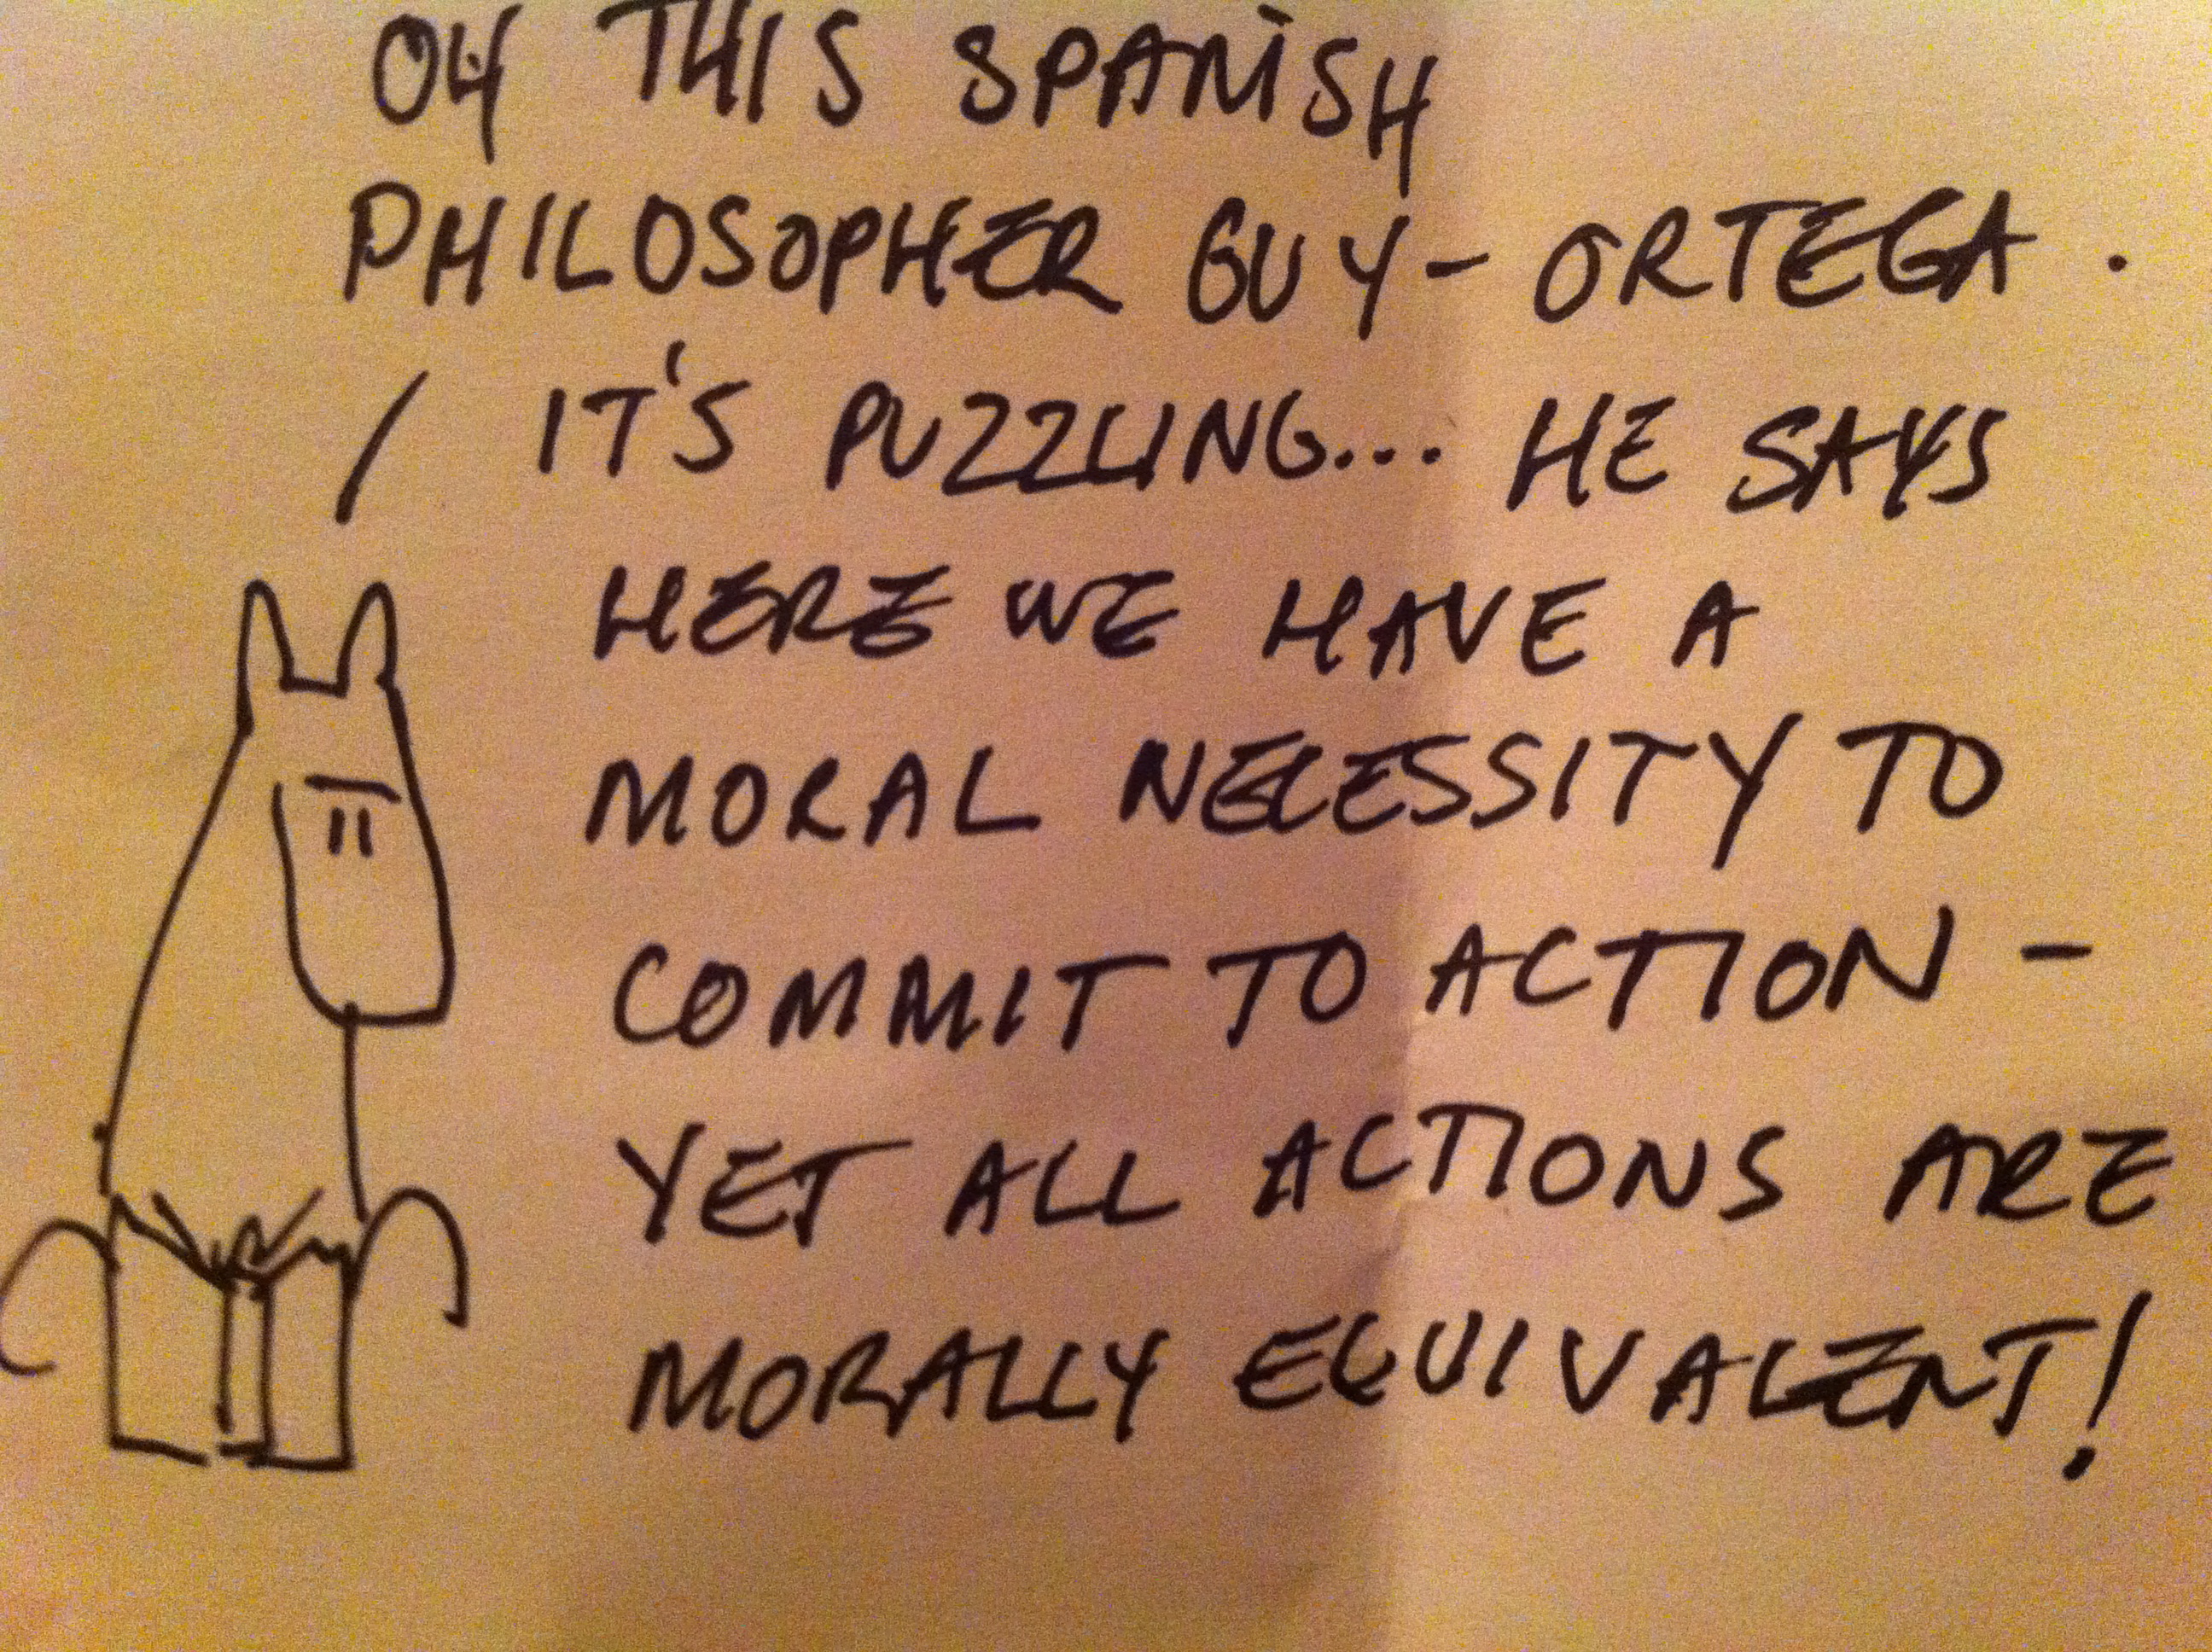 OH THIS SPANISH
PHILOSOPHER GUY - ORTEGA.
IT'S PUZZLING... HE SAYS
HERE WE HAVE A
MORAL NECESSITY TO
COMMIT TO ACTION -
YET ALL ACTIONS ARE
MORALLY EQUIVALENT!